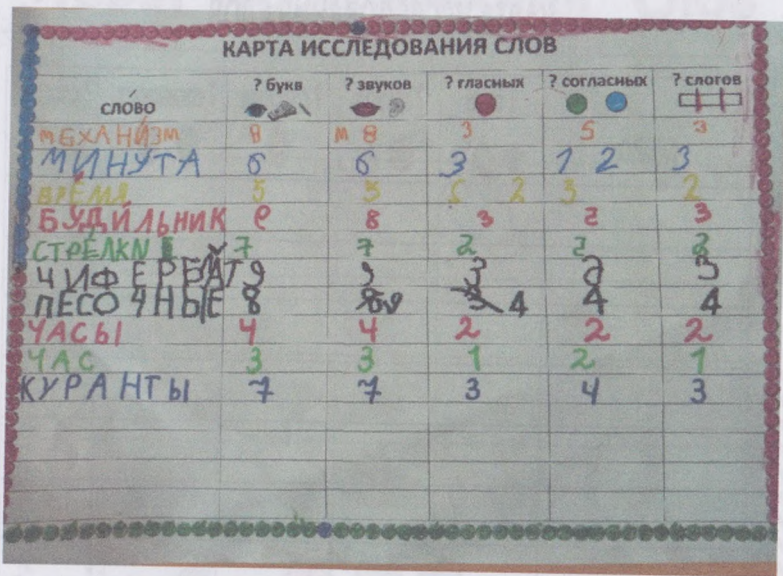 КАРТА ИССЛЕДОВАНИЯ СЛОВ
СЛО́ВО ? букв ? звуков ? гласных ? согласных ? слогов
МЕХАНИ́ЗМ 8 м 8 3 5 3
МИНУТА 6 6 3 1 2 3
ВРЕ́МЯ 5 5 2 3 2
БУДИ́ЛЬНИК 9 8 3 5 3
СТРЕ́ЛКИ 7 7 2 5 2
ЧИФЕРБЙАТ 9 9 3 3
ПЕСОЧНЫЕ 8 9 4 4 4
ЧАСЫ 4 4 2 2 2
ЧАС 3 3 1 2 1
КУРАНТЫ 7 7 3 4 3